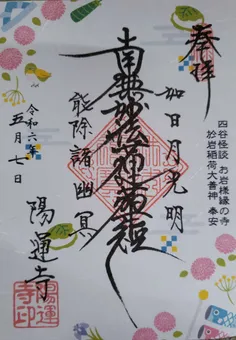 奉拝
四谷怪談 お岩様縁の寺
於岩稲荷大善神 奉安
如日月光明
南無妙法蓮華経
能除諸幽冥
令和六年
五月七日
陽運寺
陽運
寺印